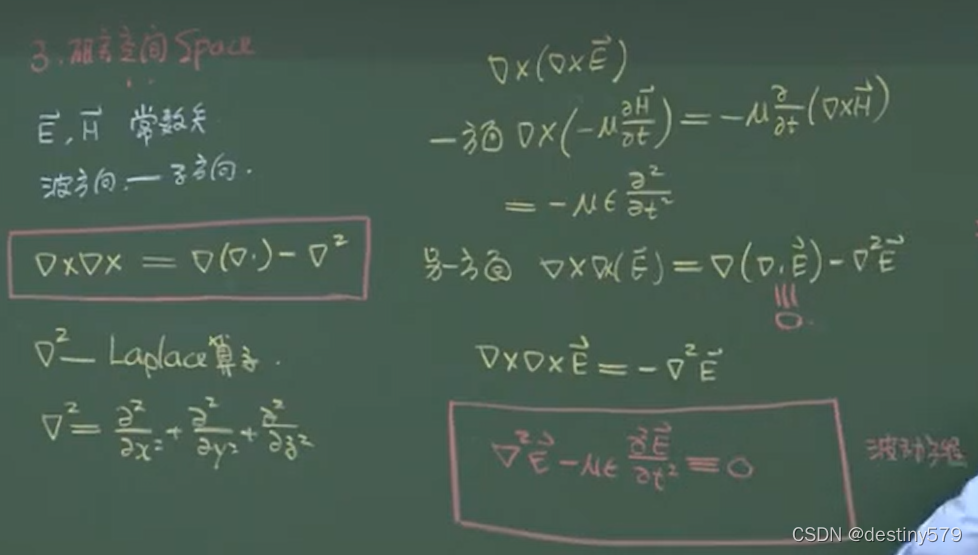 3. 研究空间 Space
E⃗, H⃗ 常数关
波方向.一子方向.
∇×∇× = ∇(∇·) - ∇²
∇² — Laplace 算子.
∇² = ∂²/∂x² + ∂²/∂y² + ∂²/∂z²
∇×(∇×E⃗)
一方面 ∇×(-μ ∂H⃗/∂t) = -μ ∂/∂t (∇×H⃗)
= -με ∂²/∂t²
另一方面 ∇×∇×(E⃗) = ∇(∇·E⃗) - ∇²E⃗
|||
0.
∇×∇×E⃗ = -∇²E⃗
∇²E⃗ - με ∂²E⃗/∂t² ≡ 0
波动方程
CSDN @destiny579